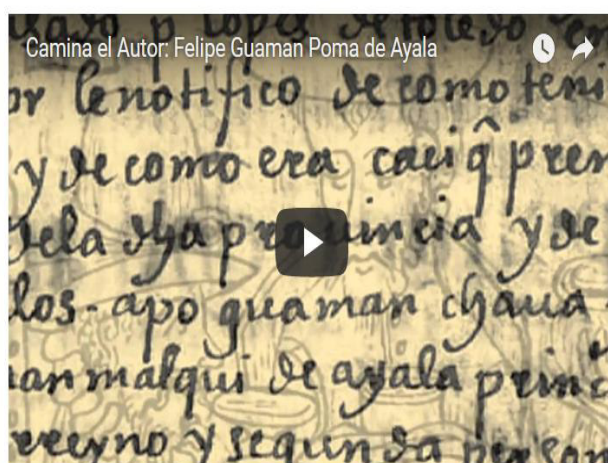 Camina el Autor: Felipe Guaman Poma de Ayala
y lopes de toledo
le notifico de como teni
y de como era caciq̂ pren
dela dha provincia y de
los - apo guaman chaua
an malqui de ayala princ
rreyno y segunda person